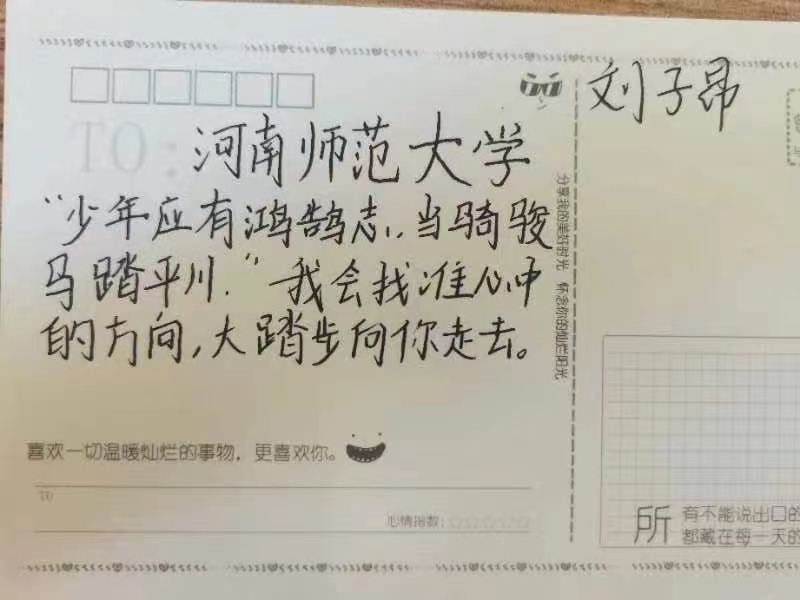 刘子昂
TO:
河南师范大学
“少年应有鸿鹄志,当骑骏
马踏平川.”我会找准心中
的方向,大踏步向你走去。
分享我的美好时光 怀念你的灿烂阳光
喜欢一切温暖灿烂的事物，更喜欢你。
TO
心情指数:☆☆☆☆☆
所有不能说出口的
都藏在每一天的